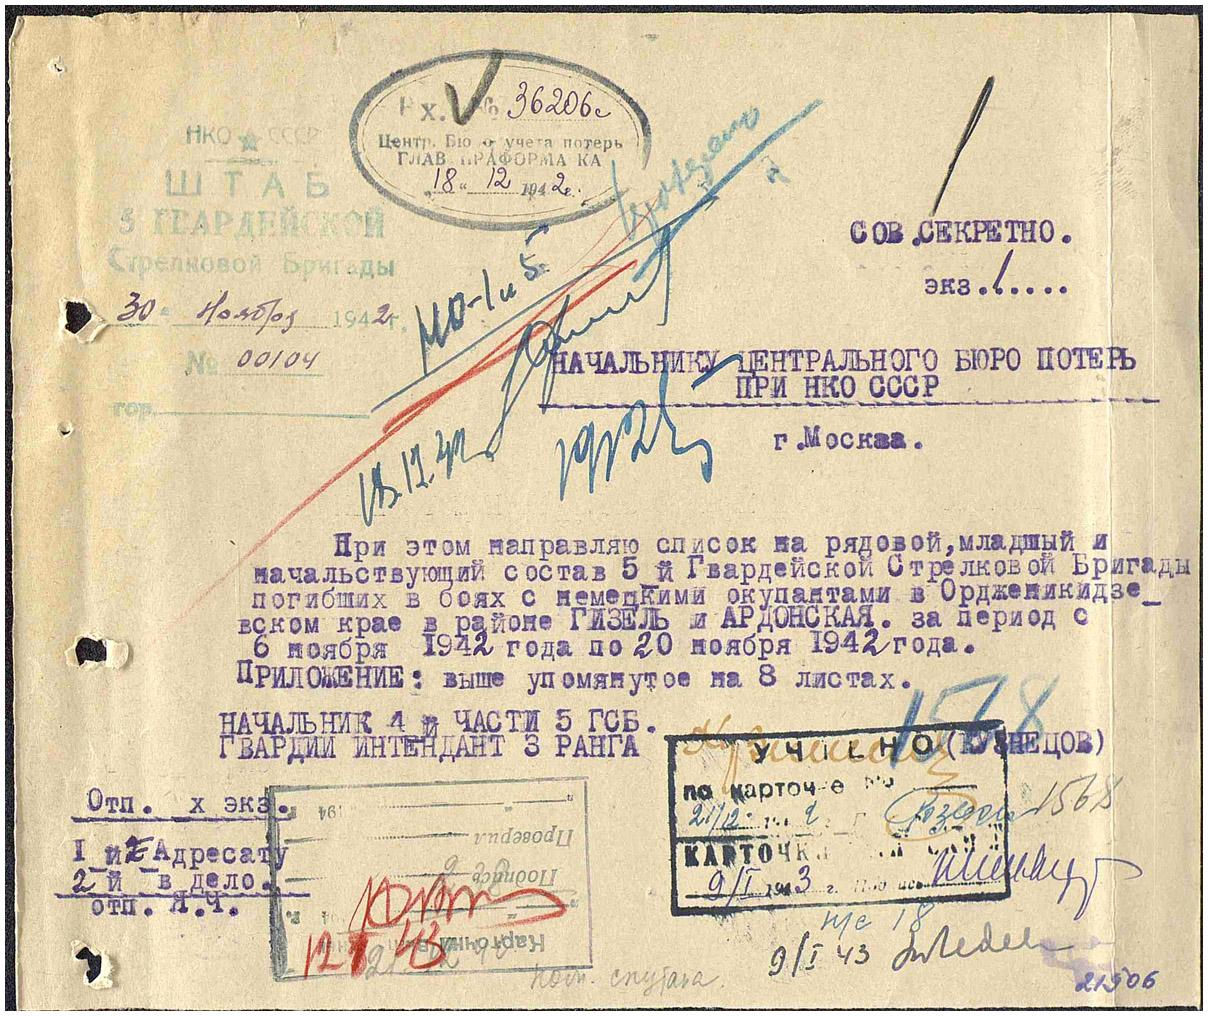 Вх. № 36206с
Центр. Бюро учета потерь
ГЛАВ. УПРАФОРМА КА
"18" 12 1942г.
НКО СССР
ШТАБ
5 ГВАРДЕЙСКОЙ
Стрелковой Бригады
30 " Ноября 1942г.
№ 00104
гор.
МО-1 и 5
18.12.42
СОВ.СЕКРЕТНО.
экз.1.....
НАЧАЛЬНИКУ ЦЕНТРАЛЬНОГО БЮРО ПОТЕРЬ
ПРИ НКО СССР
г.Москва.
При этом направляю список на рядовой,младший и
начальствующий состав 5 й Гвардейской Стрелковой Бригады
погибших в боях с немецкими окупантами в Ордженикидзе_
вском крае в районе ГИЗЕЛЬ и АРДОНСКАЯ. за период с
6 ноября 1942 года по 20 ноября 1942 года.
ПРИЛОЖЕНИЕ: выше упомянутое на 8 листах.
1568
НАЧАЛЬНИК 4 й ЧАСТИ 5 ГСБ.
ГВАРДИИ ИНТЕНДАНТ 3 РАНГА (КУЗНЕЦОВ)
УЧТЕНО
по карточке №
21/12 1942 г. 1568
КАРТОЧКА
9/I 1943 г.
н/с 18
9/I 43
Отп. х экз.
I й Адресату
2 й в дело.
отп. Я.Ч.
194
Проверил
Подпись
194
Карточки
12 I 43
21506